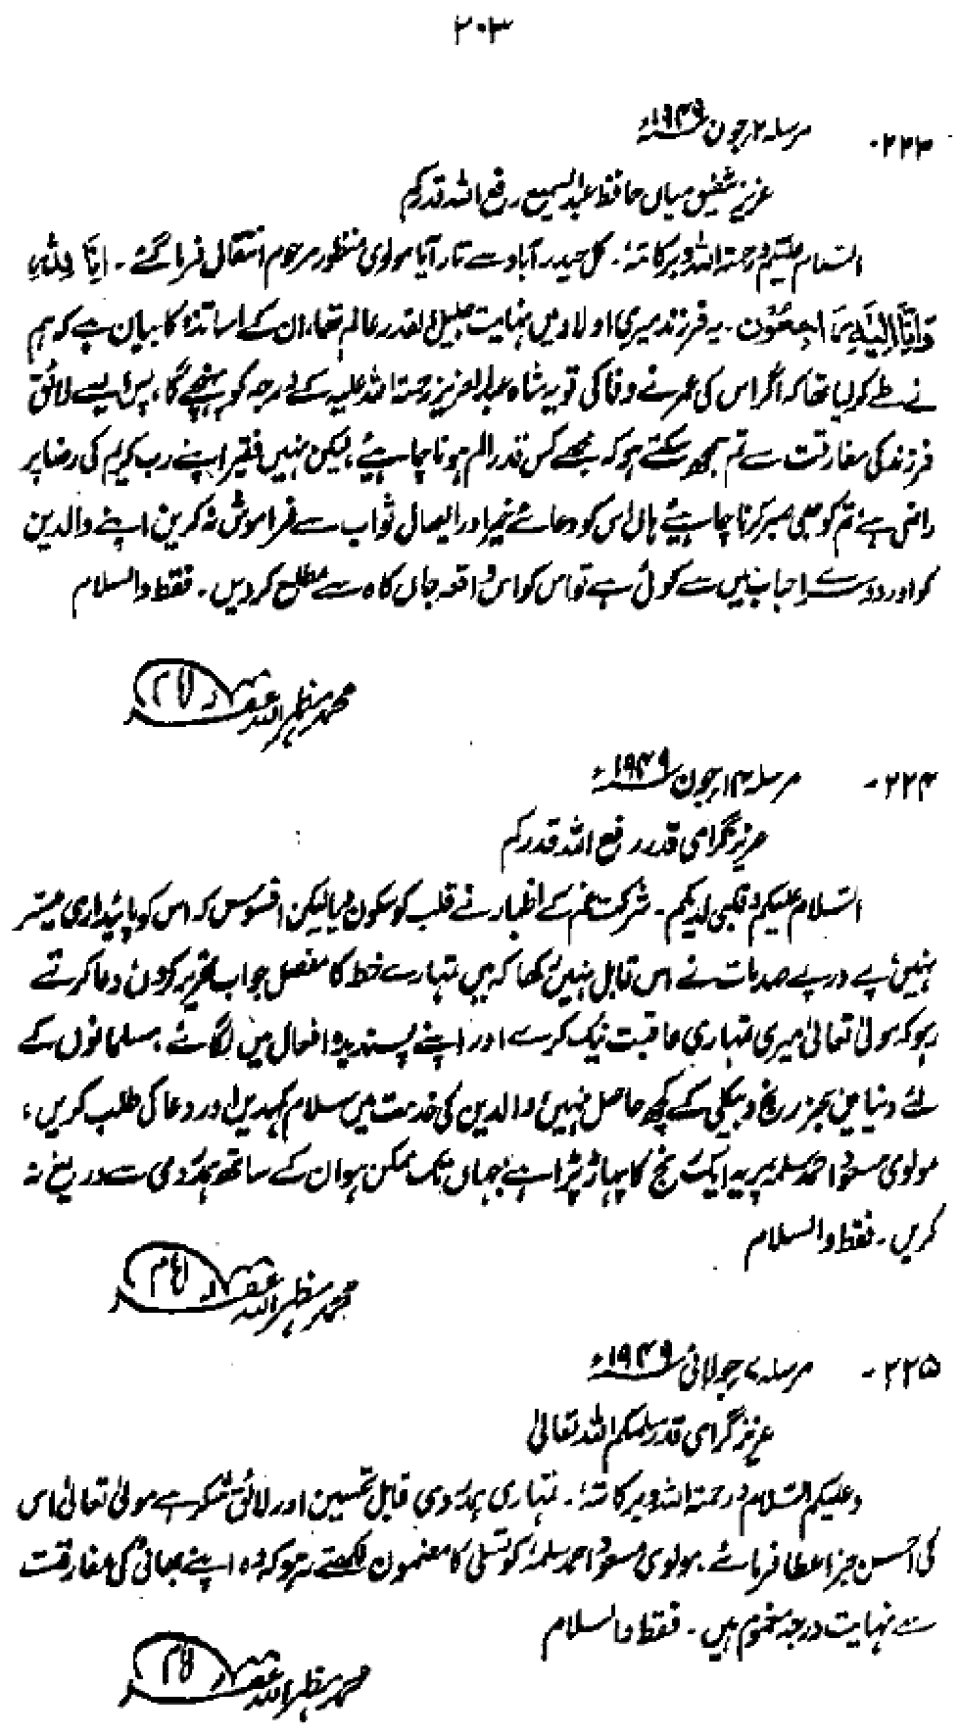 ۲۰۳
۲۲۳۔ مرسلہ ۲؍جون ۱۹۴۹ء
عزیز شفیق میاں حافظ عبدالسمیع رفع اللہ قدرکم
السلام علیکم ورحمتہ اللہ وبرکاتہٗ۔ کل حیدرآباد سے تار آیا مولوی منظور مرحوم انتقال فرما گئے۔ اِنَّا لِلّٰہِ
وَاِنَّا اِلَیْہِ رَاجِعُوْن۔ یہ فرزند میری اولاد میں نہایت جلیل القدر عالم تھا، ان کے اساتذہ کا بیان ہے کہ ہم
نے طے کر لیا تھا کہ اگر اس کی عمر نے وفا کی تو یہ شاہ عبدالعزیز رحمتہ اللہ علیہ کے درجہ کو پہنچے گا، پس ایسے لائق
فرزند کی مفارقت سے تم سمجھ سکتے ہو کہ مجھے کس قدر الم ہونا چاہیئے، لیکن نہیں فقیر اپنے رب کریم کی رضا پر
راضی ہے، تم کو بھی صبر کرنا چاہیئے ہاں اس کو دعائے خیر اور ایصال ثواب سے فراموش نہ کریں، اپنے والدین
کو اور دوسرے احباب میں سے کوئی ہے تو اس کو اس واقعہ جاں کاہ سے مطلع کر دیں۔ فقط والسلام
محمد مظہر اللہ غفرلہ
۲۲۴۔ مرسلہ ۱۴؍جون ۱۹۴۹ء
عزیز گرامی قدر رفع اللہ قدرکم
السلام علیکم وقلبی لدیکم۔ شرکت غم کے اظہار نے قلب کو سکون دیا لیکن افسوس کہ اس کو پائیداری میسر
نہیں، پے در پے صدمات نے اس قابل نہیں رکھا کہ میں تمہارے خط کا مفصل جواب تحریر کروں، دعا کرتے
رہو کہ مولیٰ تعالیٰ میری تمہاری عاقبت نیک کرے اور اپنے پسندیدہ افعال میں لگائے، مسلمانوں کے
لئے دنیا میں بجز رنج و بیکلی کے کچھ حاصل نہیں، والدین کی خدمت میں سلام کہدیں اور دعا کی طلب کریں،
مولوی مسعود احمد سلمہٗ پر یہ ایک رنج کا پہاڑ پڑا ہے، جہاں تک ممکن ہو ان کے ساتھ ہمدردی سے دریغ نہ
کریں۔ فقط والسلام
محمد مظہر اللہ غفرلہ
۲۲۵۔ مرسلہ ۷؍جولائی ۱۹۴۹ء
عزیز گرامی قدر سلمکم اللہ تعالیٰ
وعلیکم السلام ورحمتہ اللہ وبرکاتہٗ۔ تمہاری ہمدردی قابل تحسین اور لائق شکر ہے مولیٰ تعالیٰ اس
کی احسن جزا عطا فرمائے، مولوی مسعود احمد سلمہٗ کو تسلی کا مضمون لکھتے رہو کہ وہ اپنے بھائی کی مفارقت
سے نہایت درجہ مغموم ہیں۔ فقط والسلام
محمد مظہر اللہ غفرلہ